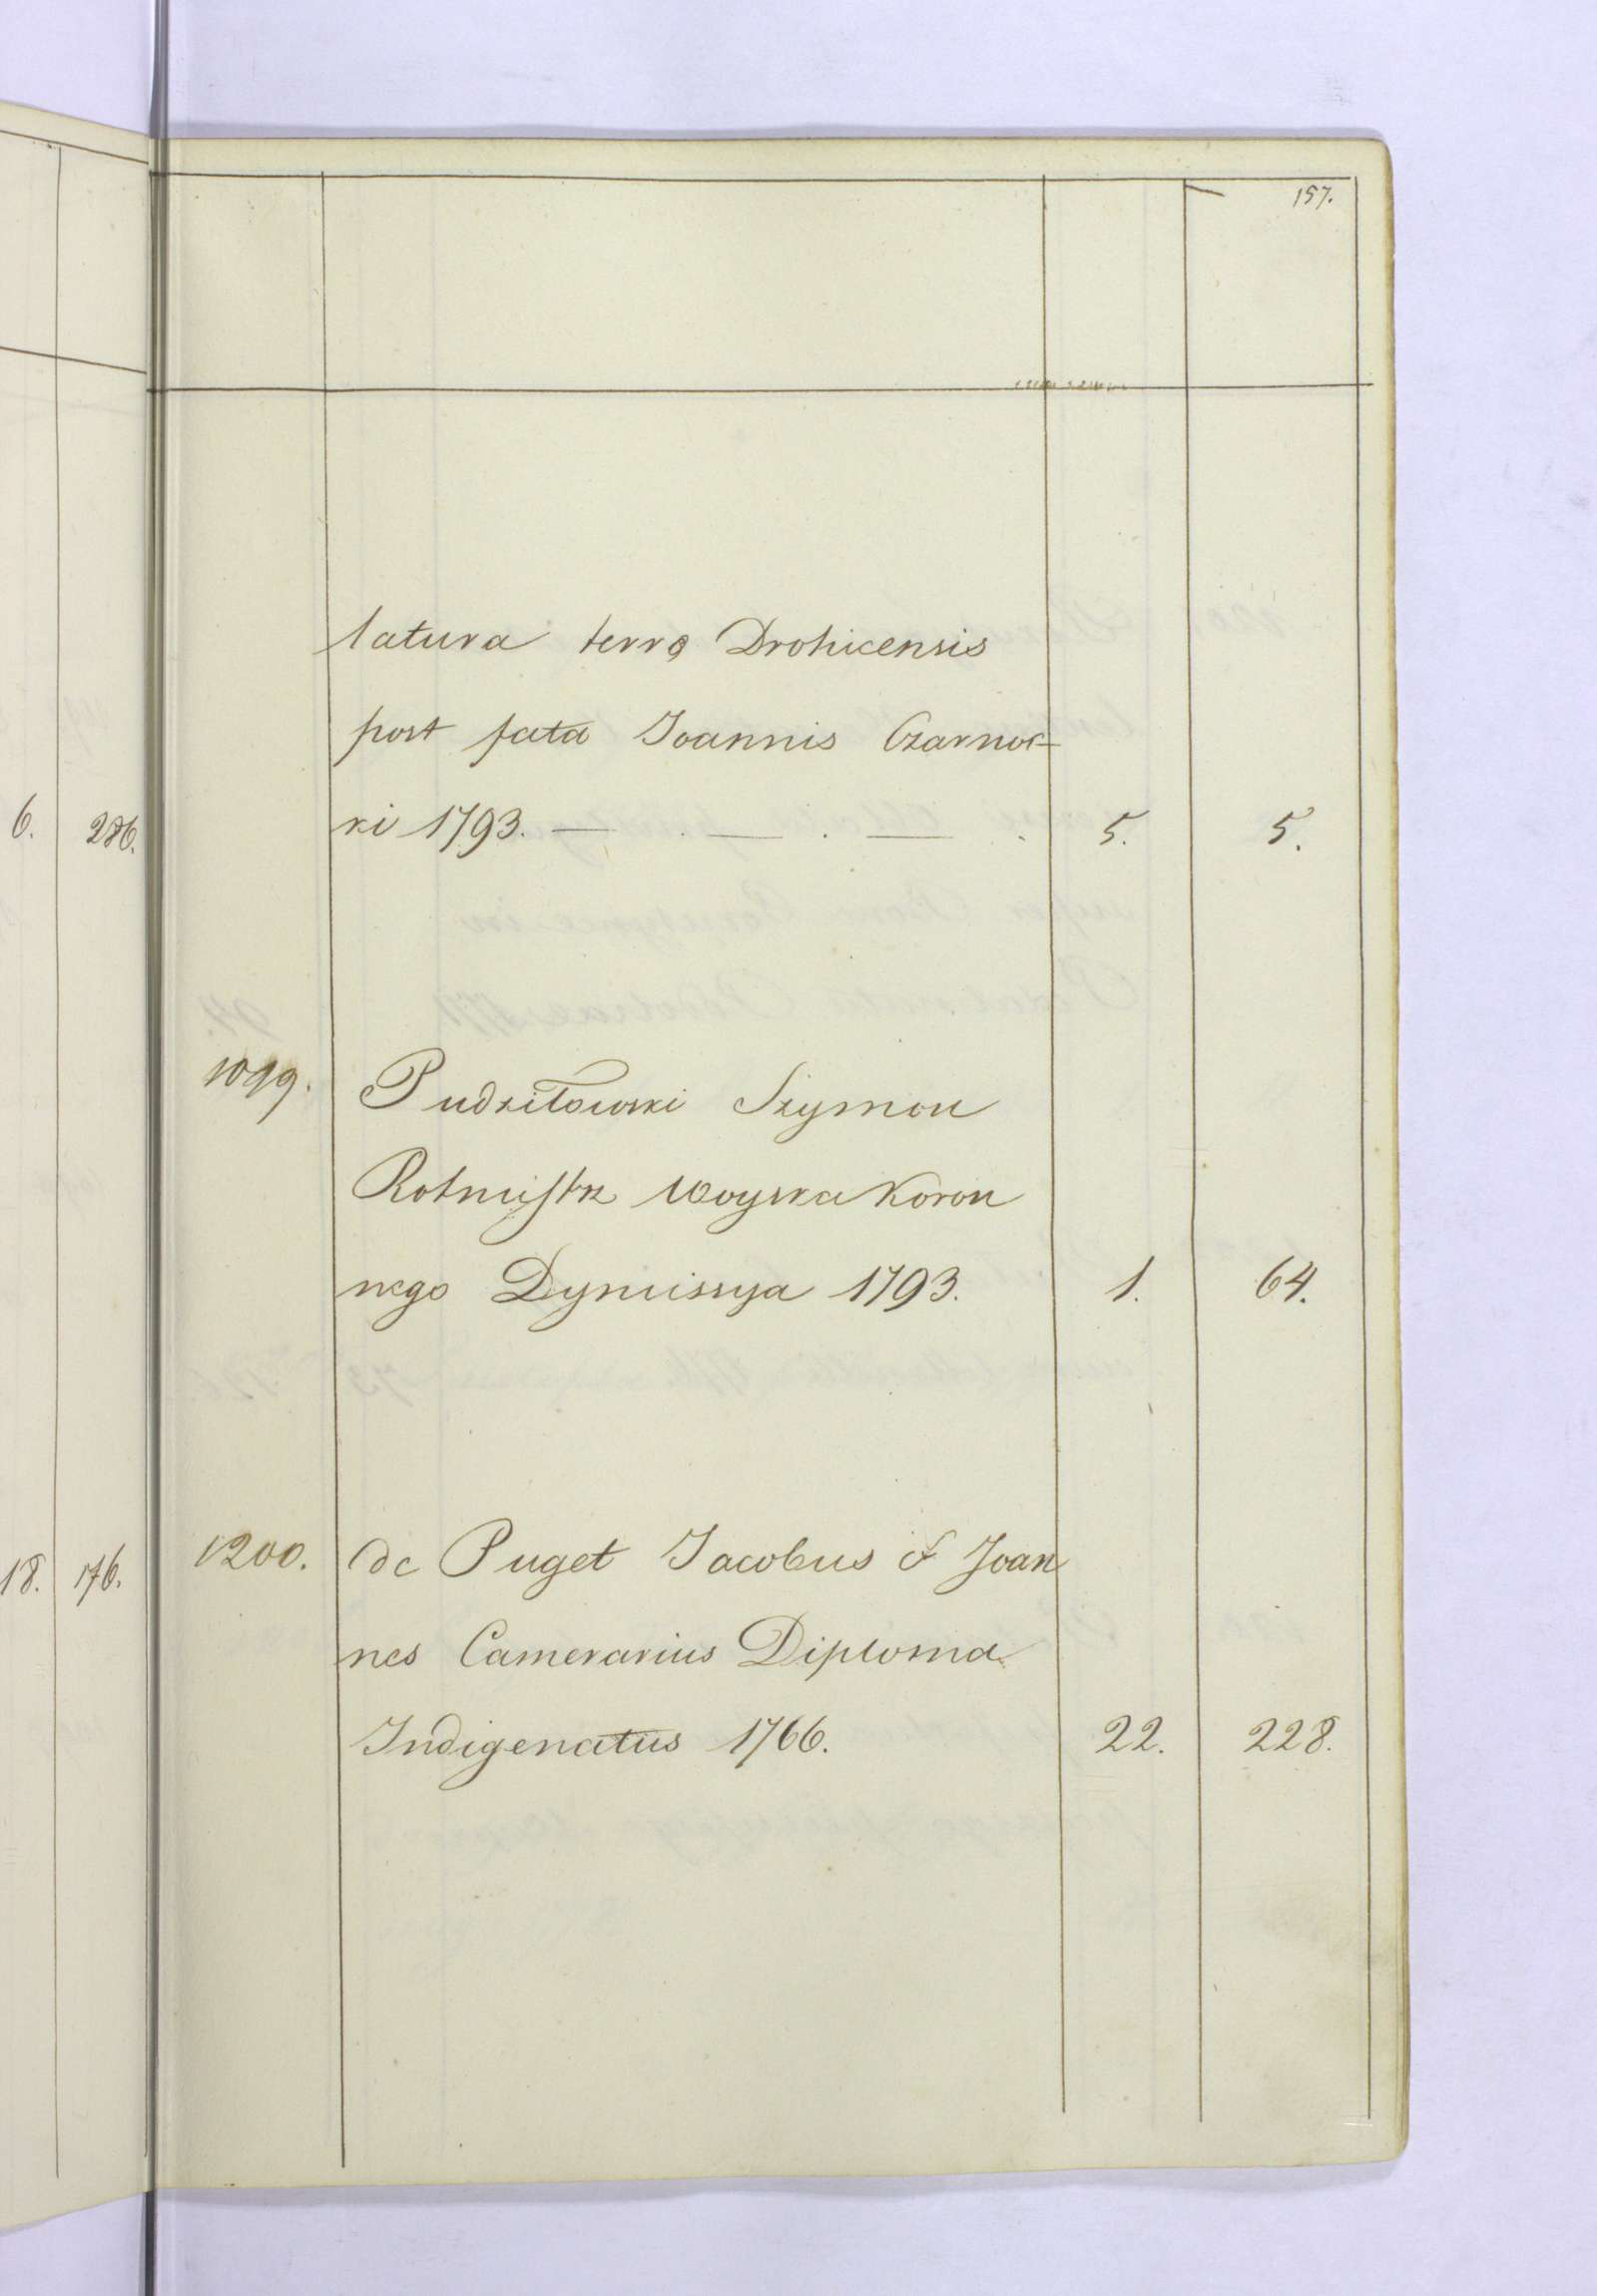 157.
latura terrę Drohicensis
post fata Joannis Czarnoc-
ki 1793. — . — . — . 5. 5.
6. 286.
1099. Pudziłowski Szymon
Rotmistrz woyska Koron
nego Dymissya 1793. 1. 64.
18. 176.
1200. de Puget Jacobus & Joan
nes Camerarius Diploma
Indigenatûs 1766. 22. 228.